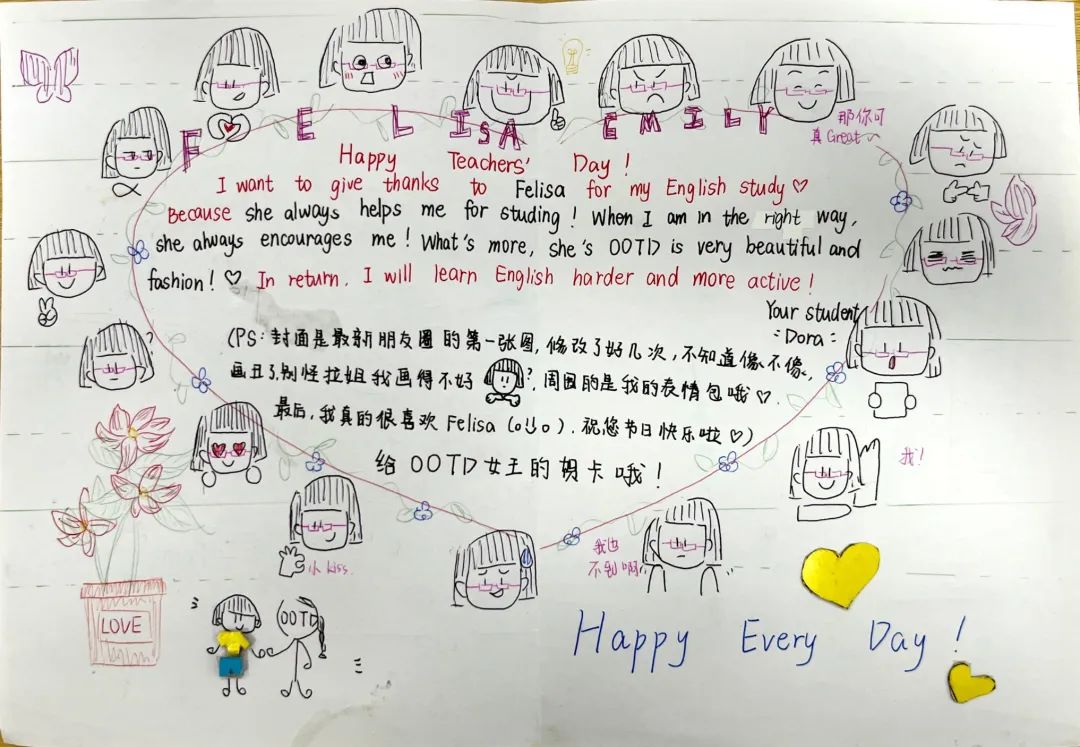 FELISA EMILY
那你可
真Great~
Happy Teachers' Day!
I want to give thanks to Felisa for my English study♡
Because she always helps me for studing! When I am in the right way,
she always encourages me! What's more, she's OOTD is very beautiful and
fashion!♡ In return, I will learn English harder and more active!
Your student
Dora
(PS:封面是最新朋友圈的第一张图,修改了好几次,不知道像不像,
画丑了别怪拉姐我画得不好?,周围的是我的表情包哦♡.
最后,我真的很喜欢Felisa(o!!o).祝您节日快乐啦♡)
给OOTD女王的贺卡哦!
我!
小kiss.
我也
不知啊
LOVE
OOTD
Happy Every Day!